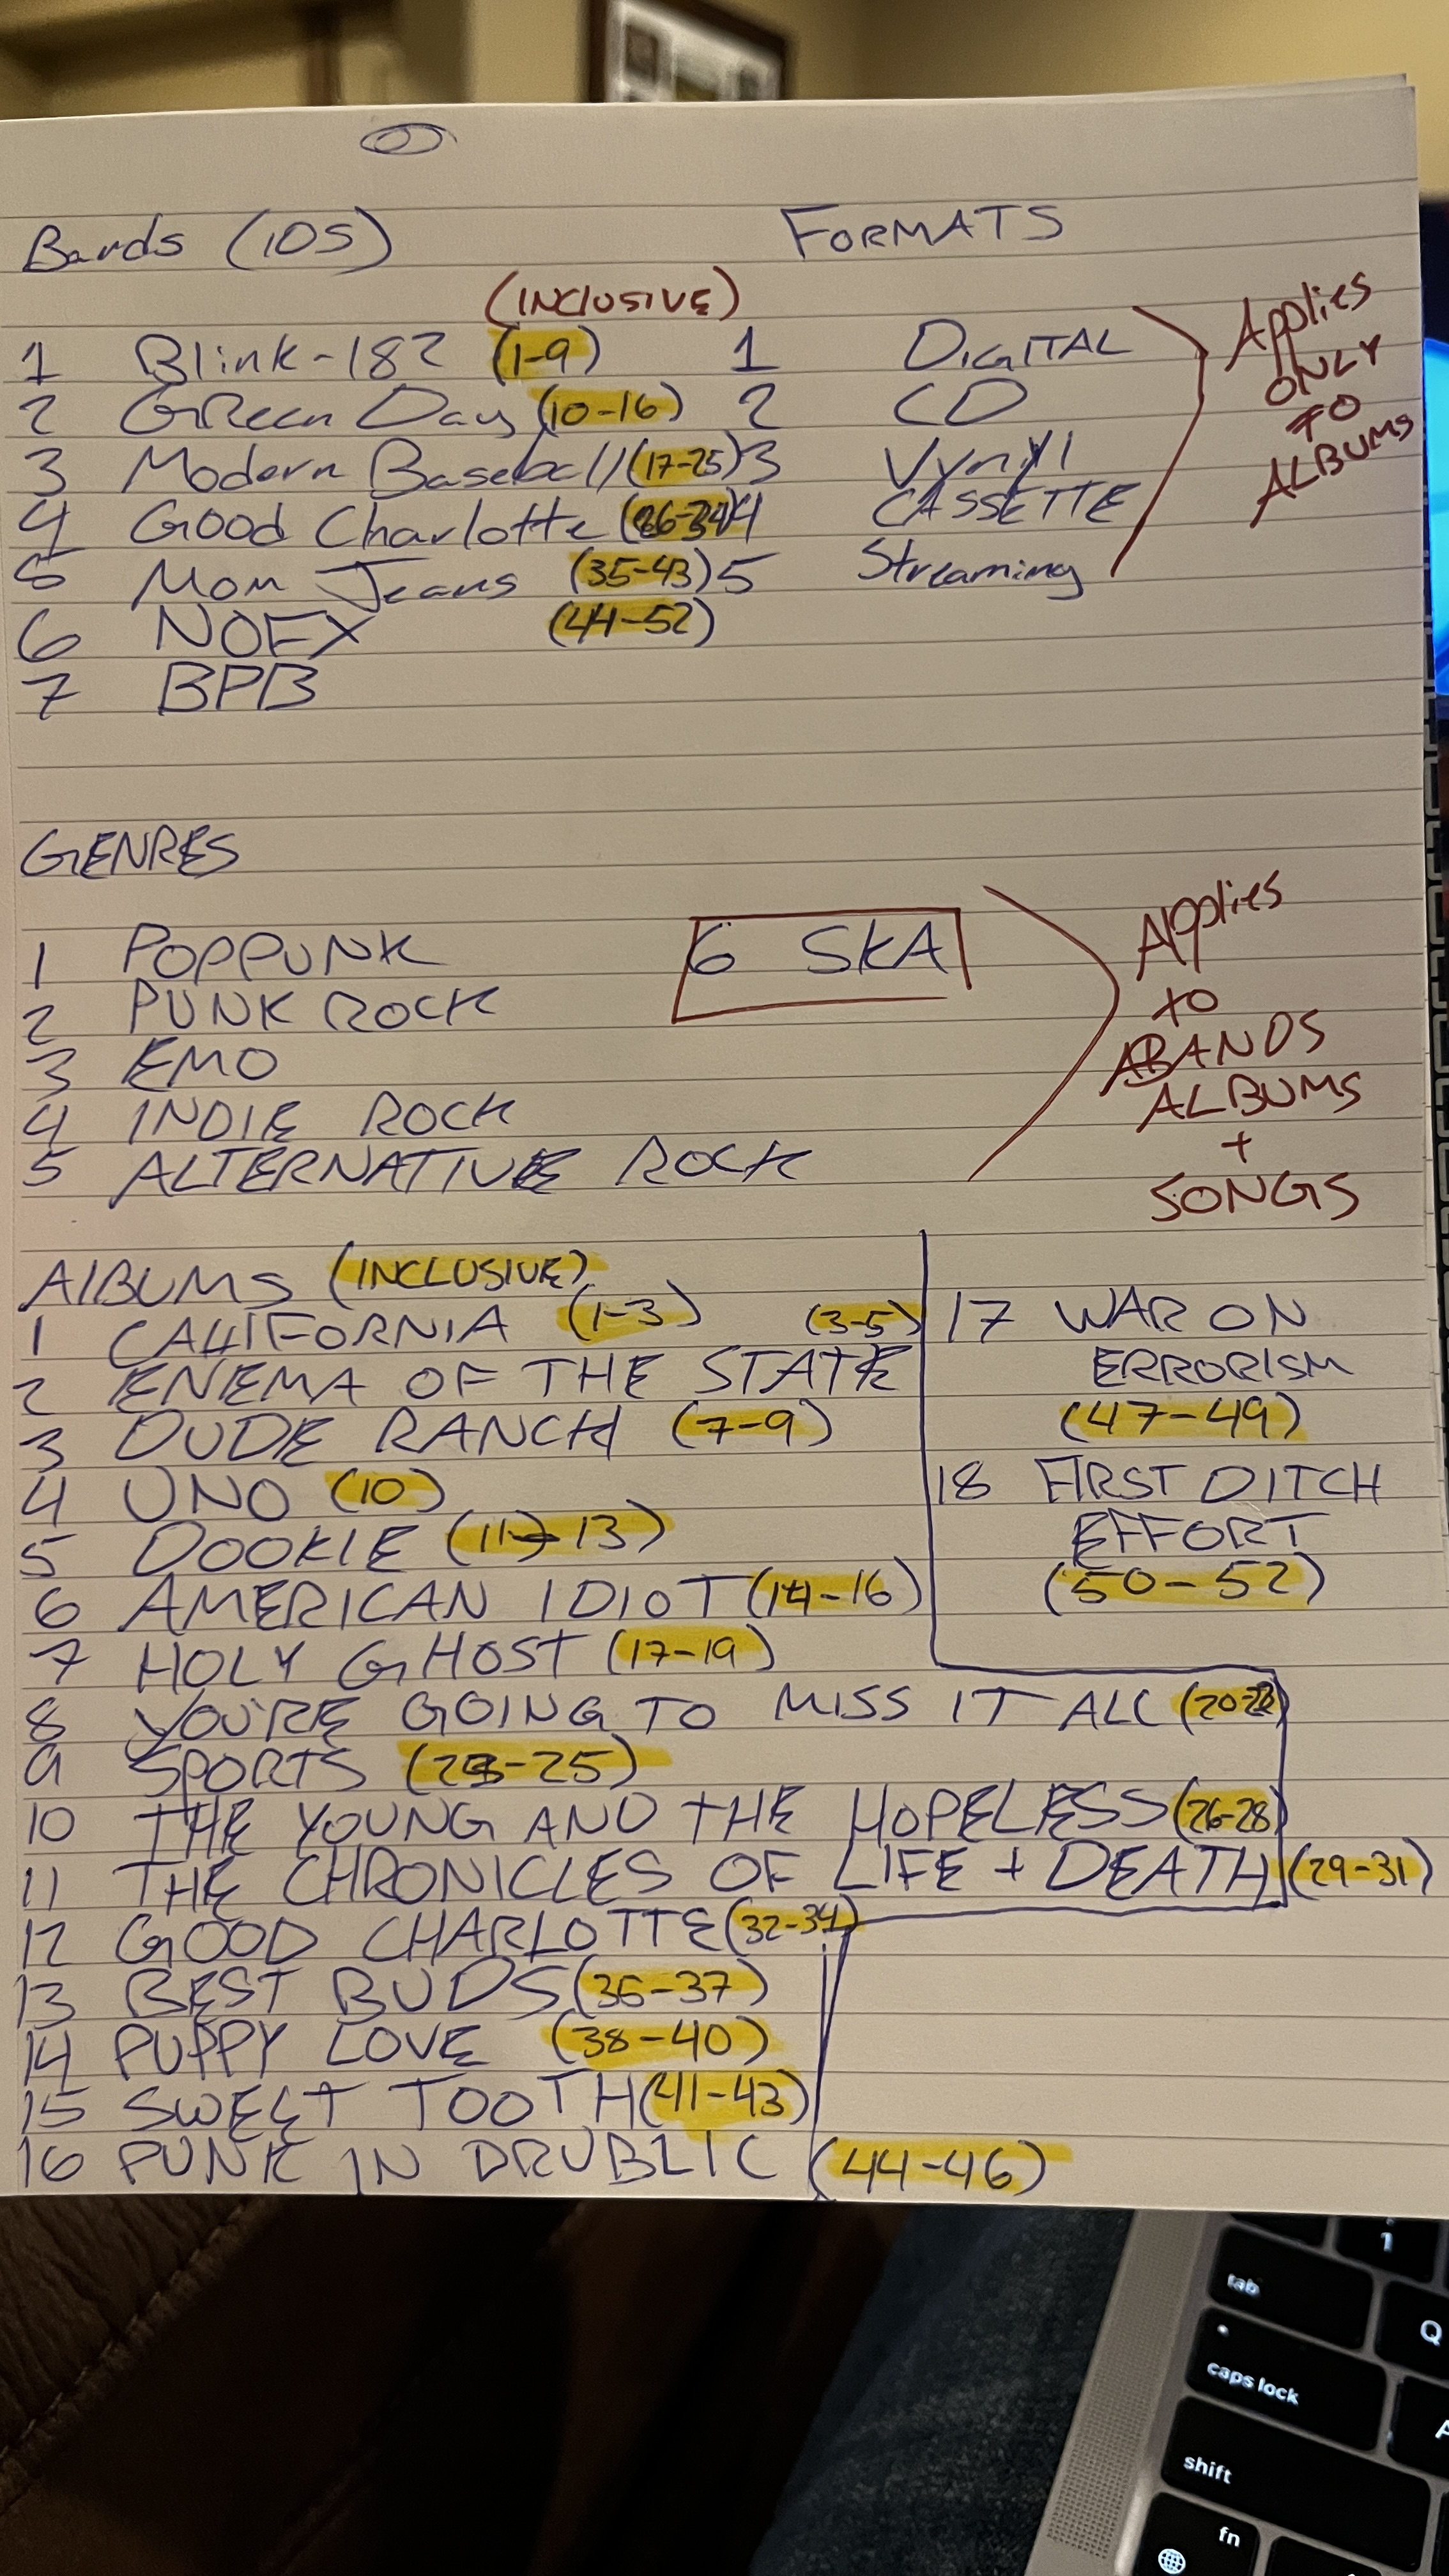 Bands (IDS)
FORMATS
(INCLUSIVE)
1 Blink-182 (1-9)
2 Green Day (10-16)
3 Modern Baseball (17-25)
4 Good Charlotte (26-34)
5 Mom Jeans (35-43)
6 NOFX (44-52)
7 BPB
1 DIGITAL
2 CD
3 Vynyl
4 CASSETTE
5 Streaming
Applies
ONLY
TO
ALBUMS
GENRES
1 POP PUNK
2 PUNK ROCK
3 EMO
4 INDIE ROCK
5 ALTERNATIVE ROCK
6 SKA
Applies
to
BANDS
ALBUMS
+
SONGS
AlBUMS (INCLUSIVE)
1 CALIFORNIA (1-3)
2 ENEMA OF THE STATE (3-5)
3 DUDE RANCH (7-9)
4 UNO (10)
5 DOOKIE (11-13)
6 AMERICAN IDIOT (14-16)
7 HOLY GHOST (17-19)
8 YOU'RE GOING TO MISS IT ALL (20-22)
9 SPORTS (23-25)
10 THE YOUNG AND THE HOPELESS (26-28)
11 THE CHRONICLES OF LIFE + DEATH (29-31)
12 GOOD CHARLOTTE (32-34)
13 BEST BUDS (35-37)
14 PUPPY LOVE (38-40)
15 SWEET TOOTH (41-43)
16 PUNK IN DRUBLIC (44-46)
17 WAR ON
ERRORISM
(47-49)
18 FIRST DITCH
EFFORT
(50-52)
1
tab
Q
caps lock
A
shift
fn